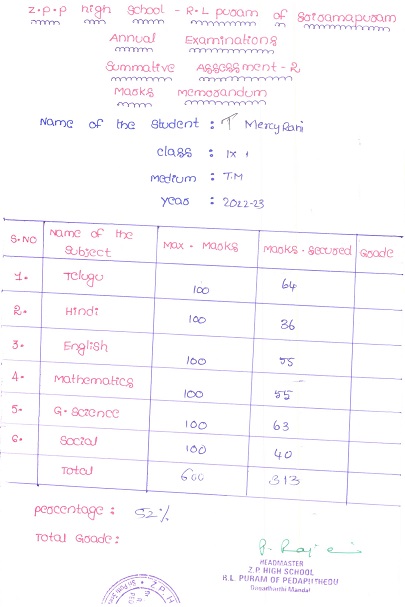 Z.P.P High School - R.L puram of Sriramapuram
Annual Examinations
Summative Assessment - 2
Marks Memorandum
Name of the Student : T Mercy Rani
class : IX +
Medium : T.M
year : 2022-23
S.NO Name of the Subject Max - Marks Marks - Secured Grade
1. Telugu 100 64
2. Hindi 100 36
3. English 100 55
4. Mathematics 100 55
5. G. Science 100 63
6. Social 100 40
Total 600 313
percentage : 52%
Total Grade :
HEADMASTER
Z.P. HIGH SCHOOL
R.L. PURAM OF PEDAPUTHEDU
Mandal
Z.P.H